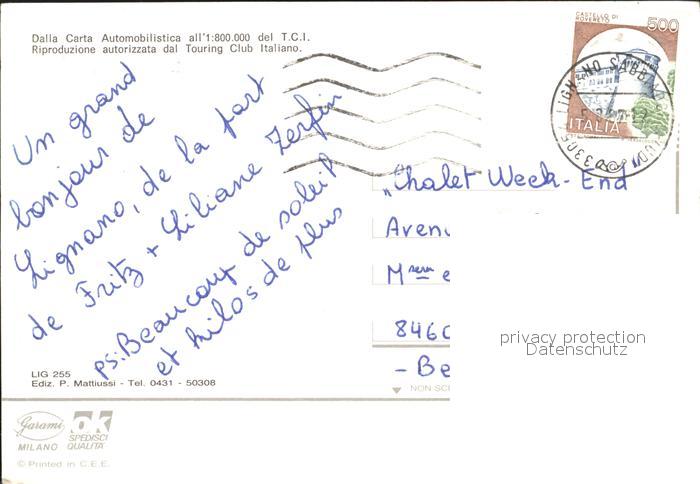 Dalla Carta Automobilistica all'1:800.000 del T.C.I.
Riproduzione autorizzata dal Touring Club Italiano.
CASTELLO DI
ROVERETO
500
ITALIA
LIGNANO SABB
Un grand
bonjour de
Lignano, de la part
de Fritz + Liliane Zerfin
ps: Beaucoup de soleil
et kilos de plus
"Chalet Week-End
Avenu
M
8460
- Be
privacy protection
Datenschutz
LIG 255
Ediz. P. Mattiussi - Tel. 0431 - 50308
NON SC
Garami
MILANO
OK
SPEDISCI
QUALITÀ
© Printed in C.E.E.